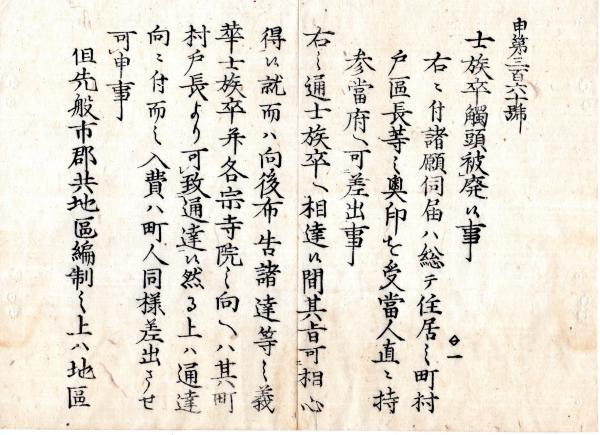 申第三百六十號
士族卒觸頭被廃候事
右ニ付諸願伺届ハ総テ住居之町村
戸區長等之奥印を受當人直ニ持
参當府へ可差出事
右之通士族卒へ相達候間其旨可相心
得候就而ハ向後布告諸達等之義
華士族卒并各宗寺院之向へハ其町
村戸長より可致通達候然る上ハ通達
向ニ付而之入費ハ町人同様差出させ
可申事
但先般市郡共地區編制之上ハ地區
一